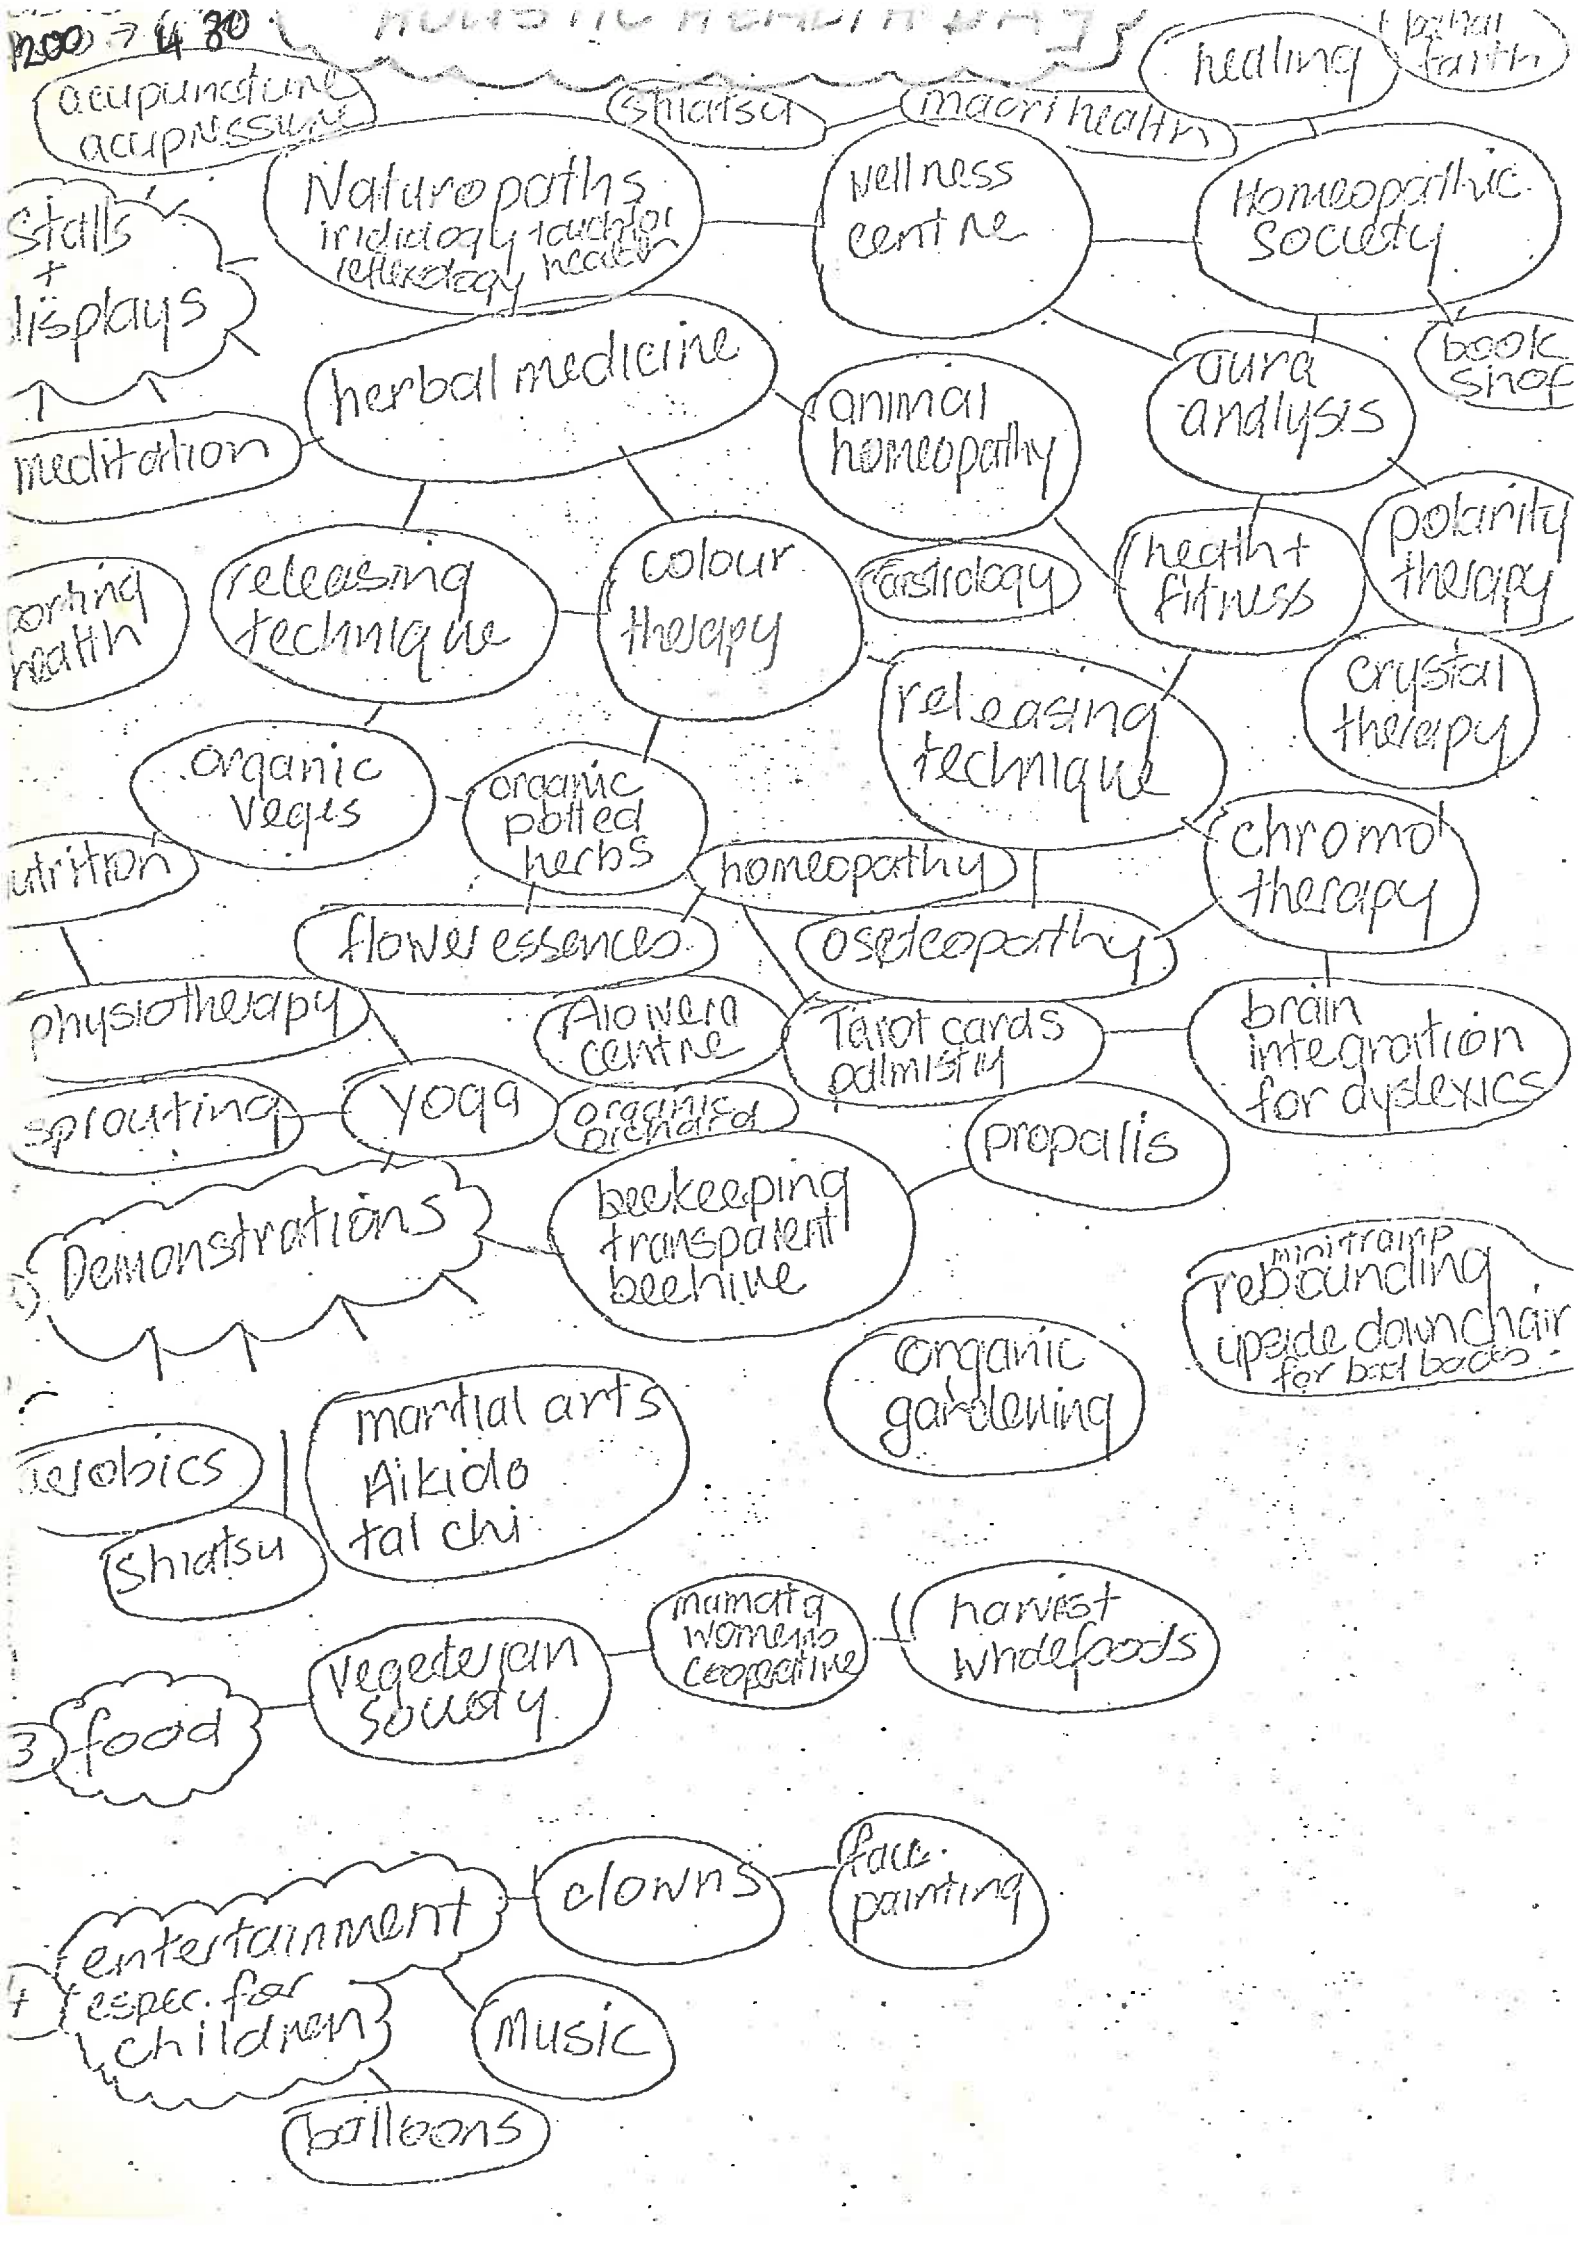 1200 → 4 30
HOLISTIC HEALTH DAY
healing
bahai
faith
acupuncture
acupressure
shiatsu
maori health
Stalls
+
displays
Naturopaths
iridiology touch for
reflexology health
wellness
centre
Homeopathic
Society
book
shop
herbal medicine
animal
homeopathy
aura
analysis
meditation
releasing
technique
colour
therapy
astrology
health +
fitness
polarity
therapy
porting
health
crystal
therapy
organic
veges
organic
potted
herbs
releasing
technique
chromo
therapy
utrition
homeopathy
flower essences
oseteopathy
physiotherapy
Aloivera
centre
Tarot cards
palmistry
brain
integration
for dyslexics
sprouting
yoga
organic
orchard
propalis
Demonstrations
beekeeping
transparent
beehive
mini tramp
rebounding
upside down chair
for bad backs
organic
gardening
aerobics
shiatsu
martial arts
Aikido
tai chi
3 food
vegeterian
society
mamata
womens
cooperative
harvest
wholefoods
4
entertainment
espec. for
children
clowns
face
painting
music
balloons